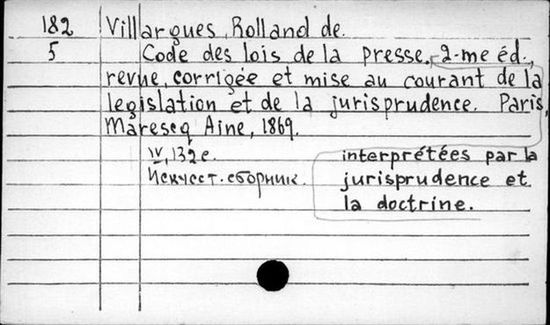 182 Villargues, Rolland de.
5 Code des lois de la presse, 2-me éd.,
revue, corrigée et mise au courant de la
legislation et de la jurisprudence. Paris,
Marescq Aine, 1869.
IV, 132 c. interprétées par la
Искусст. сборник. jurisprudence et
la doctrine.